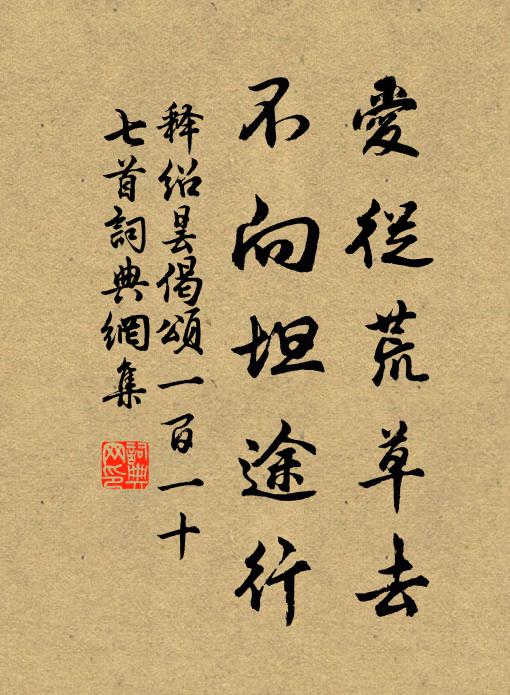 愛從荒草去
不向坦途行
釋紹曇偈頌一百一十
七首詞典網集
詞典
网印